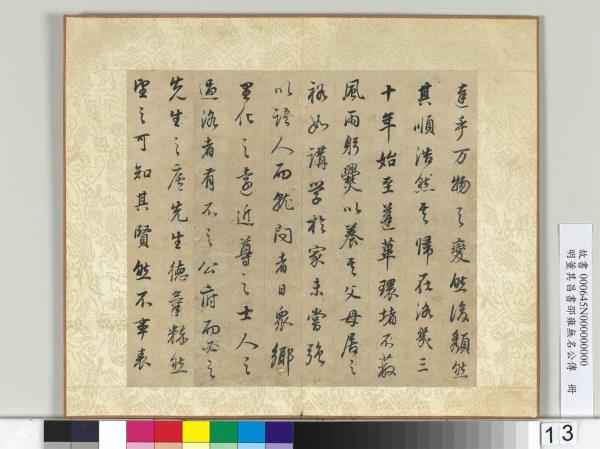 達乎万物之變然後頹然
其順浩然其歸在洛幾三
十年始至蓬蓽環堵不蔽
風雨躬爨以養其父母居之
裕如講学於家未嘗強
以語人而就問者日衆鄉
里化之遠近尊之士人之
過洛者有不之公府而必之
先生之廬先生德氣粹然
望之可知其賢然不事表
故書 000645N000000000
明董其昌書邵雍無名公傳 冊
13